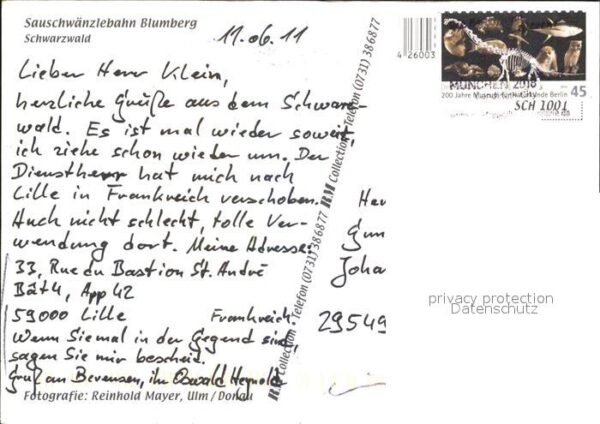 Sauschwänzlebahn Blumberg
Schwarzwald
11.06.11
Lieber Herr Klein,
herzliche Grüße aus dem Schwarz-
wald. Es ist mal wieder soweit,
ich ziehe schon wieder um. Der
Dienstherr hat mich nach
Lille in Frankreich verschoben.
Auch nicht schlecht, tolle Ver-
wendung dort. Meine Adresse:
33, Rue du Bastion St. André
Bât4, App 42
59000 Lille Frankreich
Wenn Sie mal in der Gegend sind,
sagen Sie mir bescheid.
Gruß an Bevensen, ihr Oswald
Fotografie: Reinhold Mayer, Ulm / Donau
RM Collection • Telefon (0731) 386877 RM Collection • Telefon (0731) 386877
4 26003
200 Jahre Museum für Naturkunde Berlin 45
MÜNCHEN 2018
SCH 1001
Her
Gun
Joha
29549
privacy protection
Datenschutz